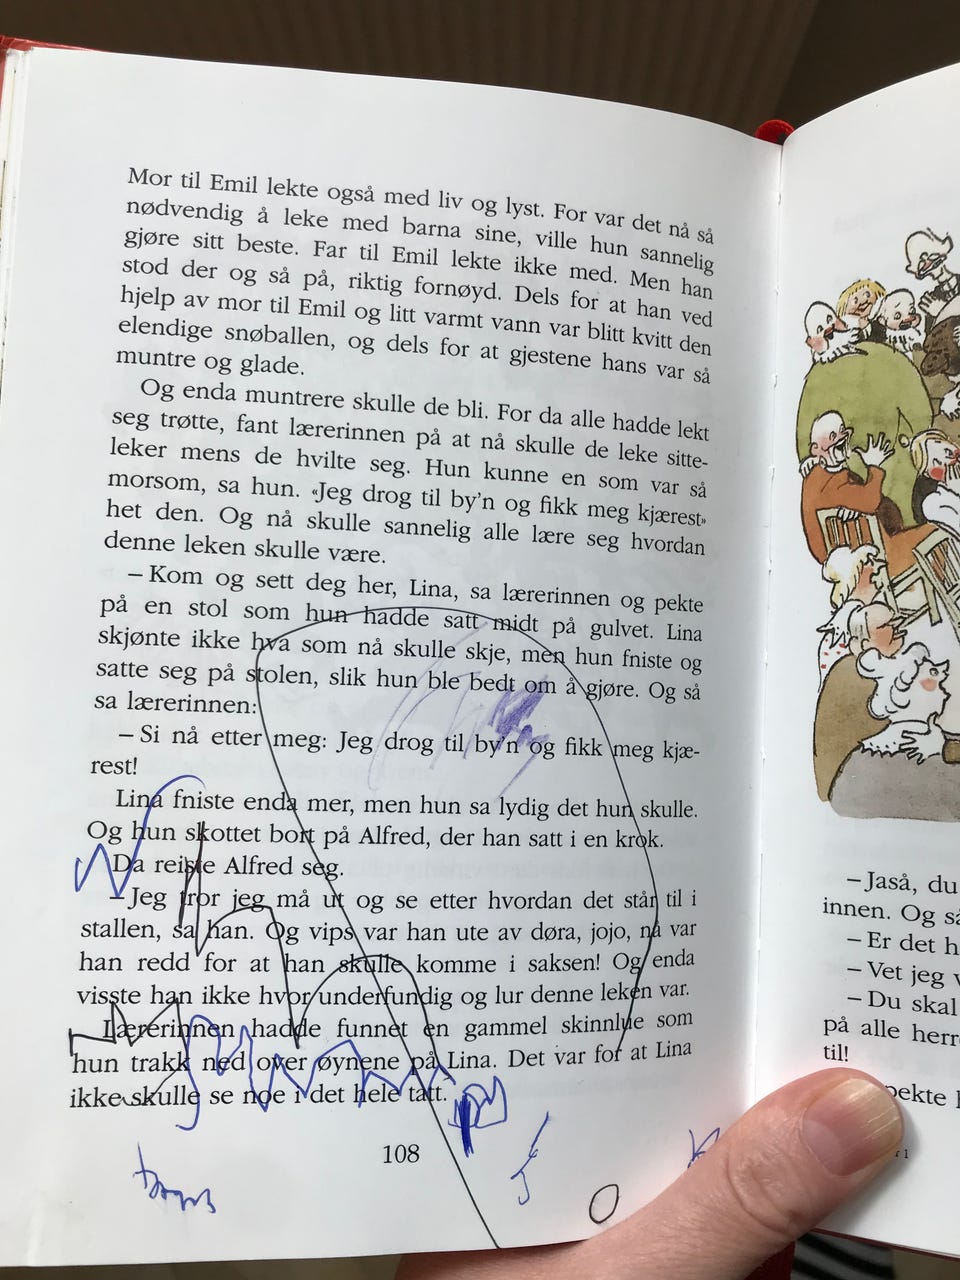 Mor til Emil lekte også med liv og lyst. For var det nå så
nødvendig å leke med barna sine, ville hun sannelig
gjøre sitt beste. Far til Emil lekte ikke med. Men han
stod der og så på, riktig fornøyd. Dels for at han ved
hjelp av mor til Emil og litt varmt vann var blitt kvitt den
elendige snøballen, og dels for at gjestene hans var så
muntre og glade.
Og enda muntrere skulle de bli. For da alle hadde lekt
seg trøtte, fant lærerinnen på at nå skulle de leke sitte-
leker mens de hvilte seg. Hun kunne en som var så
morsom, sa hun. «Jeg drog til by'n og fikk meg kjærest»
het den. Og nå skulle sannelig alle lære seg hvordan
denne leken skulle være.
– Kom og sett deg her, Lina, sa lærerinnen og pekte
på en stol som hun hadde satt midt på gulvet. Lina
skjønte ikke hva som nå skulle skje, men hun fniste og
satte seg på stolen, slik hun ble bedt om å gjøre. Og så
sa lærerinnen:
– Si nå etter meg: Jeg drog til by'n og fikk meg kjæ-
rest!
Lina fniste enda mer, men hun sa lydig det hun skulle.
Og hun skottet bort på Alfred, der han satt i en krok.
Da reiste Alfred seg.
– Jeg tror jeg må ut og se etter hvordan det står til i
stallen, sa han. Og vips var han ute av døra, jojo, nå var
han redd for at han skulle komme i saksen! Og enda
visste han ikke hvor underfundig og lur denne leken var.
Lærerinnen hadde funnet en gammel skinnlue som
hun trakk ned over øynene på Lina. Det var for at Lina
ikke skulle se noe i det hele tatt.
108
– Jaså, du
innen. Og så
– Er det h
– Vet jeg v
– Du skal
på alle herr
til!
pekte